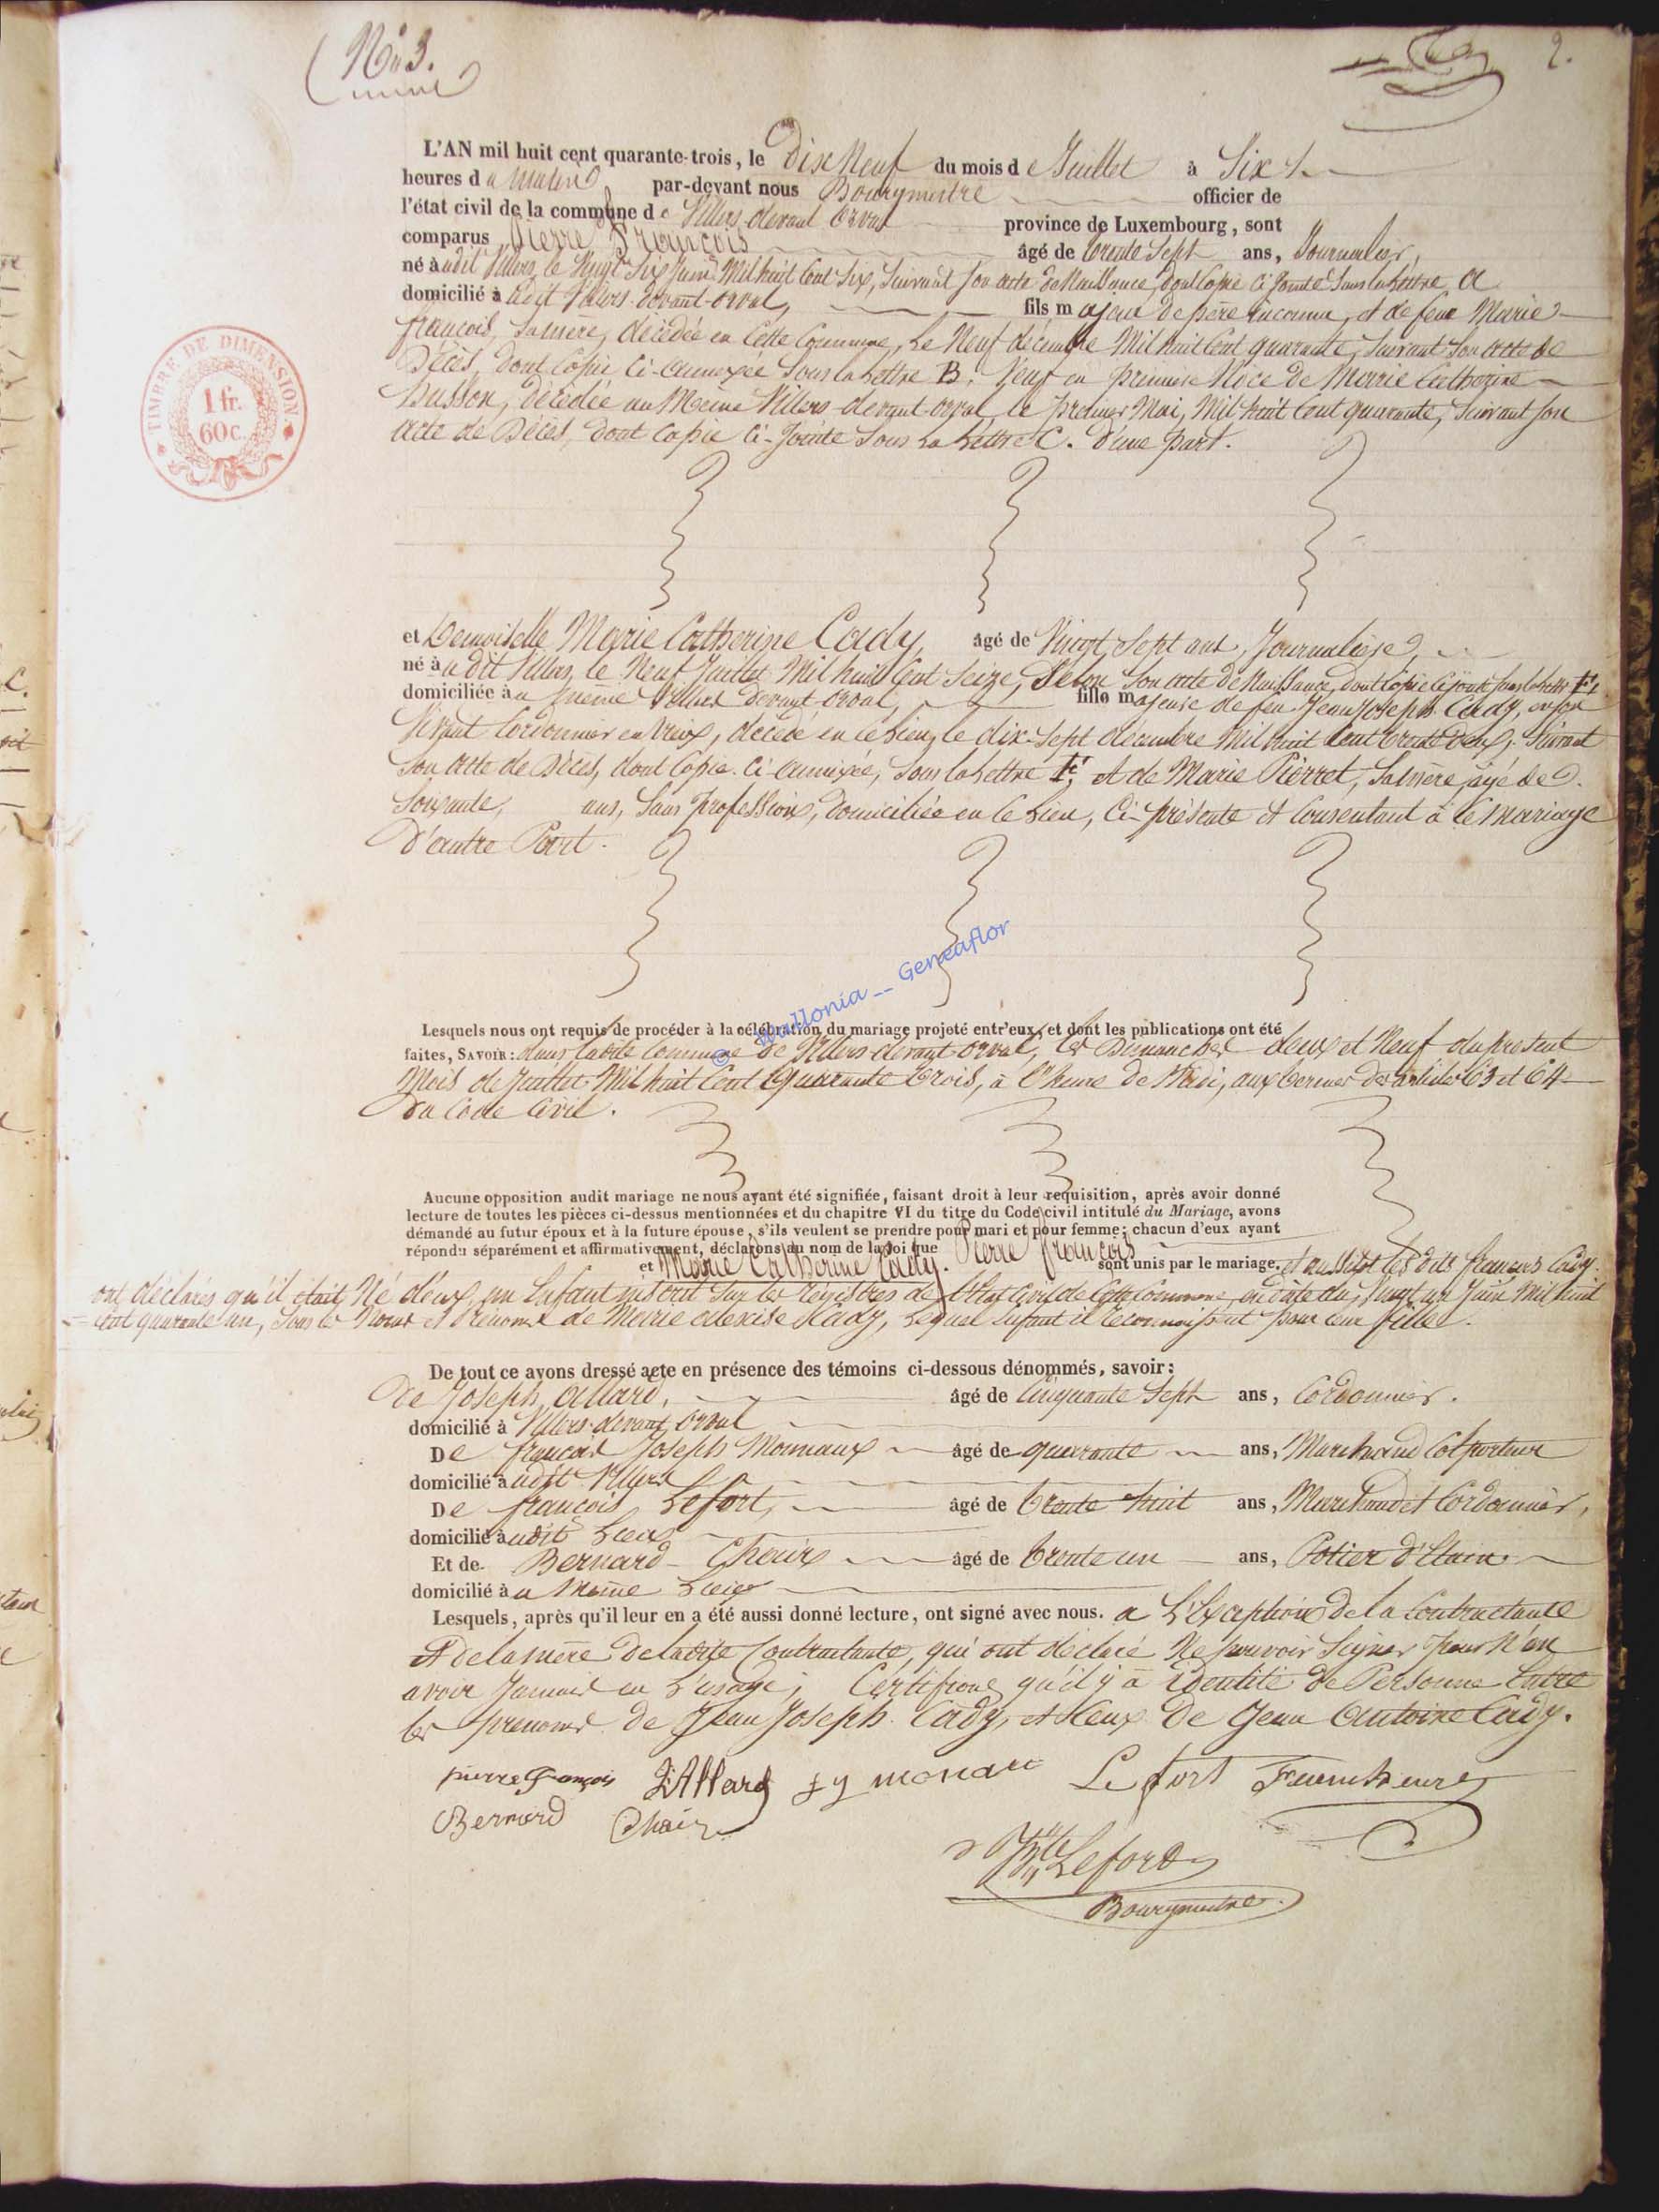 N° 3.
2.
L'AN mil huit cent quarante-trois, le Dix Neuf du mois de Juillet à Six
heures du Matin par-devant nous Bourgmestre officier de
l'état civil de la commune de Villers-devant-Orval province de Luxembourg, sont
comparus Pierre François âgé de trente Sept ans, Journalier,
né à udit Villers, le Vingt Six Juin Mil huit Cent Six, Suivant Son acte de Naissance, dont Copie Ci Jointe Sous la Lettre A
domicilié à udit Villers-devant-orval, fils majeur de père inconnu, et de feue Marie
françois, Sa mère, décédée en Cette Commune, Le Neuf décembre Mil huit Cent quarante, Suivant Son Acte de
Décès, dont Copie Ci-annexée Sous la Lettre B. Veuf en première Noce de Marie Catherine
Husson, décédée au Meme Villers-devant-orval, le premier Mai, Mil-huit Cent quarante, Suivant Son
Acte de Décès, dont Copie Ci-Jointe Sous La Lettre C. d'une part.
TIMBRE DE DIMENSION
1 fr.
60 c.
et Demoiselle Marie Catherine Cady, âgé de Vingt Sept ans, Journalière,
né à udit Villers, le Neuf Juillet Mil huit Cent Seize, Selon Son acte de Naissance, dont Copie Ci jointe Sous la lettre
domiciliée à u meme Villers devant-orval, fille majeure de feu Jean Joseph Cady, en son
Vivant Cordonnier en vieux, décédé en ce Lieu, le dix-Sept décembre Mil huit Cent trente Deux, Suivant
Son Acte de Décès, dont Copie Ci-annexée, Sous la Lettre Et de Marie Pierret, Sa mère, agé de
Soixante, ans, Sans Profession, domiciliée en Ce Lieu, Ci-présente et Consentant à Ce Mariage
D'autre Part.
© Wallonia -- Geneaflor
Lesquels nous ont requis de procéder à la célébration du mariage projeté entr'eux, et dont les publications ont été
faites, SAVOIR: dans ladite Commune de Villers-devant-orval, les Dimanches deux et Neuf du present
Mois de Juillet Mil huit Cent Quarante trois, à l'heure de Midi, aux termes des articles 63 et 64
du Code Civil.
Aucune opposition audit mariage ne nous ayant été signifiée, faisant droit à leur requisition, après avoir donné
lecture de toutes les pièces ci-dessus mentionnées et du chapitre VI du titre du Code civil intitulé du Mariage, avons
démandé au futur époux et à la future épouse, s'ils veulent se prendre pour mari et pour femme; chacun d'eux ayant
répondu séparément et affirmativement, déclarons au nom de la loi que Pierre François
et Marie Catherine Cady. sont unis par le mariage. et aussitot les dits francois Cady
ont déclarés qu'il était Né d'eux, un Enfant inscrit Sur les Régistres de l'Etat Civil de Cette Commune, en date du Vingt un Juin Mil huit
Cent quarante un, Sous les Noms et Prénoms de Marie Cady, Lequel Enfant il Reconnoissent pour leur fille.
De tout ce avons dressé acte en présence des témoins ci-dessous dénommés, savoir:
De Joseph Allard, âgé de Cinquante Sept ans, Cordonnier.
domicilié à Villers-devant-orval
De françois Joseph Monnaux âgé de quarante ans, Marchand Colporteur
domicilié à udit Villers
De françois Lefort, âgé de trente huit ans, Marchand et Cordonnier,
domicilié à udit Lieu
Et de Bernard Choix âgé de trente un ans, Potier d'Etain
domicilié à u Même Lieu
Lesquels, après qu'il leur en a été aussi donné lecture, ont signé avec nous. a L'Exception de la Contractante
Et de la mère de ladite Contractante, qui ont déclaré Ne pouvoir Signer pour N'en
avoir Jamais eu L'usage; Certifions qu'il y a identité de Personne Entre
les prenoms de Jean Joseph Cady, et Ceux De Jean Antoine Cady.
pierre françois J Allard Lefort
Bernard
Lefort
Bourgmestre